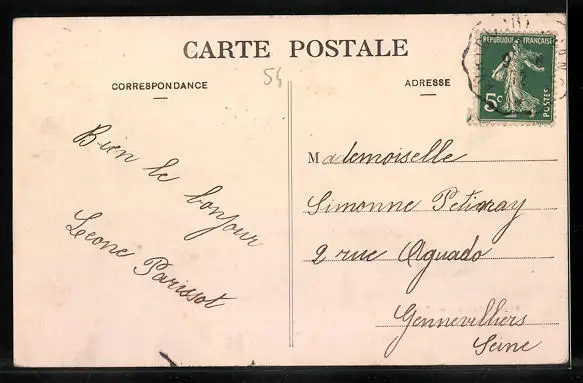 CARTE POSTALE
CORRESPONDANCE
54
ADRESSE
REPUBLIQUE FRANÇAISE
5c
POSTES
Bien le bonjour
Leone Parissot
Mademoiselle
Simonne Petitnay
2 rue Aguado
Gennevilliers
Seine